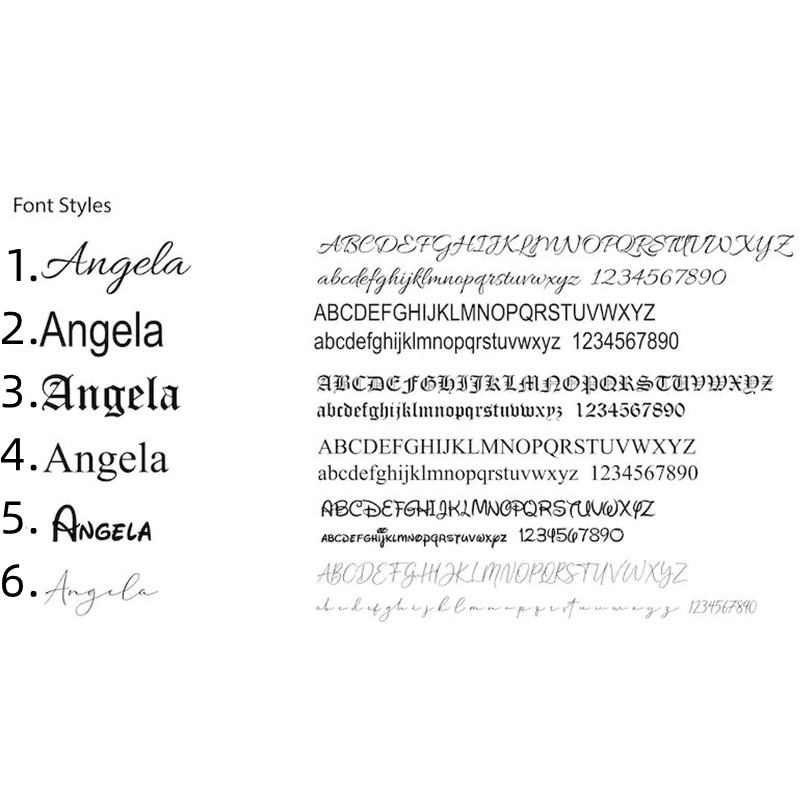 Font Styles
1. Angela
ABCDEFGHIJKLMNOPQRSTUVWXYZ
abcdefghijklmnopqrstuvwxyz 1234567890
2. Angela
ABCDEFGHIJKLMNOPQRSTUVWXYZ
abcdefghijklmnopqrstuvwxyz 1234567890
3. Angela
ABCDEFGHIJKLMNOPQRSTUVWXYZ
abcdefghijklmnopqrstuvwxyz 1234567890
4. Angela
ABCDEFGHIJKLMNOPQRSTUVWXYZ
abcdefghijklmnopqrstuvwxyz 1234567890
5. Angela
ABCDEFGHIJKLMNOPQRSTUVWXYZ
abcdefghijklmnopqrstuvwxyz 1234567890
6. Angela
ABCDEFGHIJKLMNOPQRSTUVWXYZ
abcdefghijklmnopqrstuvwxyz 1234567890